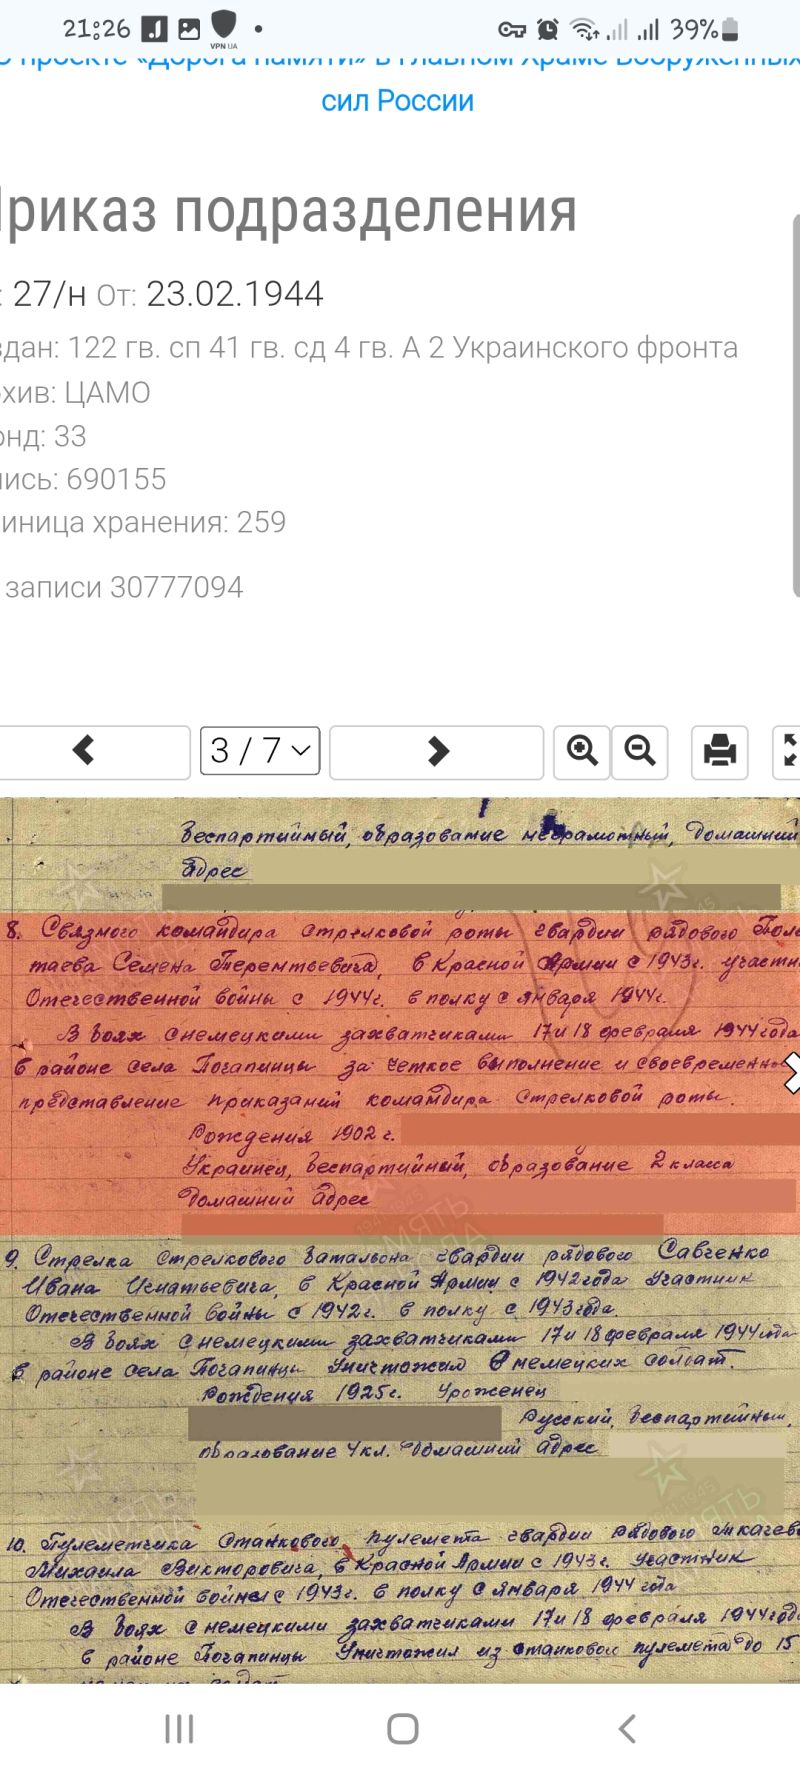 21:26
VPN UA
39%
о проекте «Дорога памяти» в Главном Храме Вооруженных
сил России
Приказ подразделения
: 27/н От: 23.02.1944
здан: 122 гв. сп 41 гв. сд 4 гв. А 2 Украинского фронта
рхив: ЦАМО
онд: 33
пись: 690155
диница хранения: 259
записи 30777094
3 / 7
беспартийный, образование неграмотный, Домашний
адрес
8. Связного командира стрелковой роты гвардии рядового Пол
таева Семена Терентьевича, в Красной Армии с 1943г. участн
Отечественной войны с 1944г. в полку с января 1944г.
В боях с немецкими захватчиками 17 и 18 февраля 1944 года
в районе села Почапинцы за четкое выполнение и своевременное
представление приказаний командира стрелковой роты.
Рождения 1902 г.
Украинец, беспартийный, образование 2 класса
Домашний адрес
9. Стрелка стрелкового батальона гвардии рядового Савченко
Ивана Игнатьевича, в Красной Армии с 1942 года Участник
Отечественной войны с 1942г. в полку с 1943 года.
В боях с немецкими захватчиками 17 и 18 февраля 1944 года
в районе села Почапинцы Уничтожил немецких солдат.
Рождения 1925г. Уроженец
Русский, беспартийный,
образование 4 кл. Домашний адрес
10. Пулеметчика станкового пулемета гвардии рядового Ткачев
Михаила Викторовича, в Красной Армии с 1943г. Участник
Отечественной войны с 1943г. в полку с января 1944 года
В боях с немецкими захватчиками 17 и 18 февраля 1944 года
в районе Почапинцы Уничтожил из станкового пулемета до 15